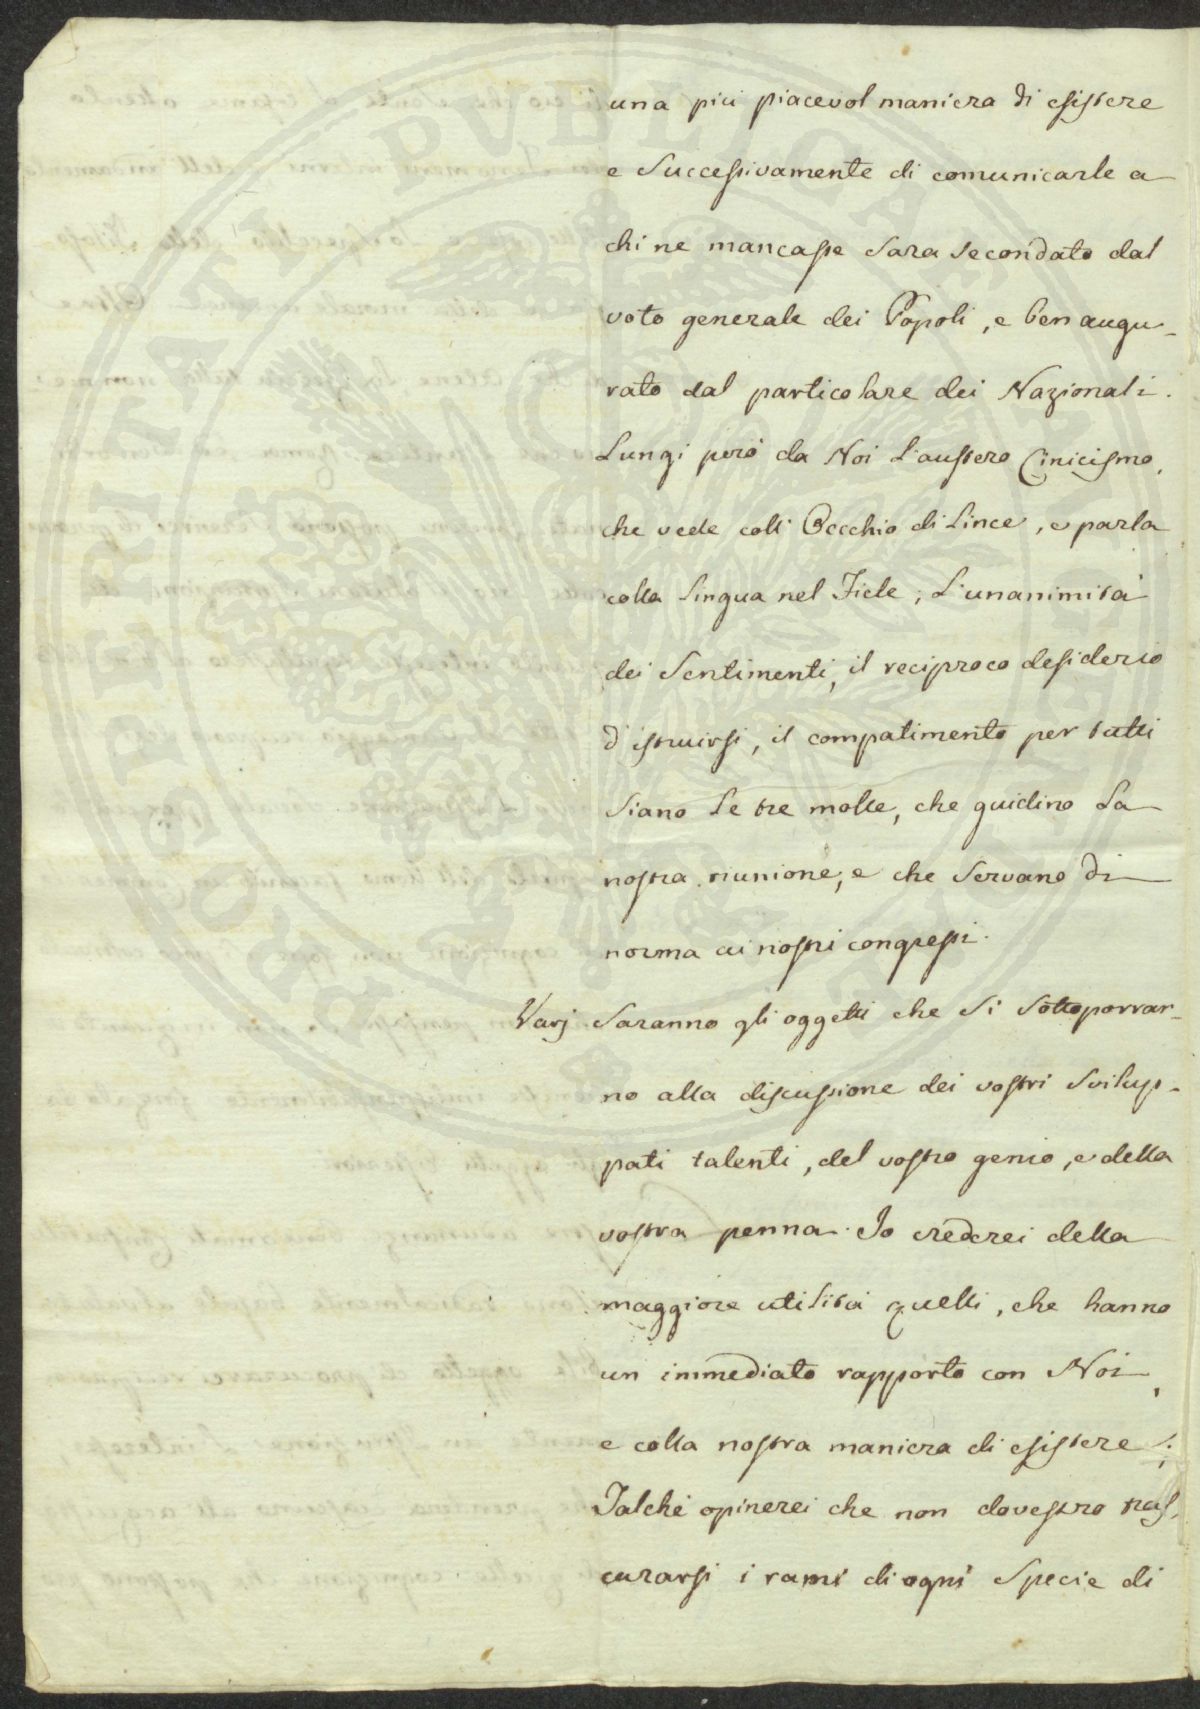 una più piacevol maniera di esistere
e successivamente di comunicarle a
chi ne mancasse sara secondato dal
voto generale dei Popoli, e ben augu-
rato dal particolare dei Nazionali.
Lungi però da Noi l'austero Cinicismo,
che vede coll' Occhio di Lince, e parla
colla lingua nel Fiele; L'unanimità
dei Sentimenti, il reciproco desiderio
d'istruirsi, il compatimento per tutti
siano le tre molle, che guidino la
nostra riunione, e che servano di
norma ai nostri congressi.
Varj saranno gli oggetti che si sottoporran-
no alla discussione dei vostri svilup-
pati talenti, del vostro genio, e della
vostra penna. Io crederei della
maggiore utilità quelli, che hanno
un immediato rapporto con Noi,
e colla nostra maniera di esistere;
Talchè opinerei che non dovessero tras-
curarsi i rami di ogni specie di